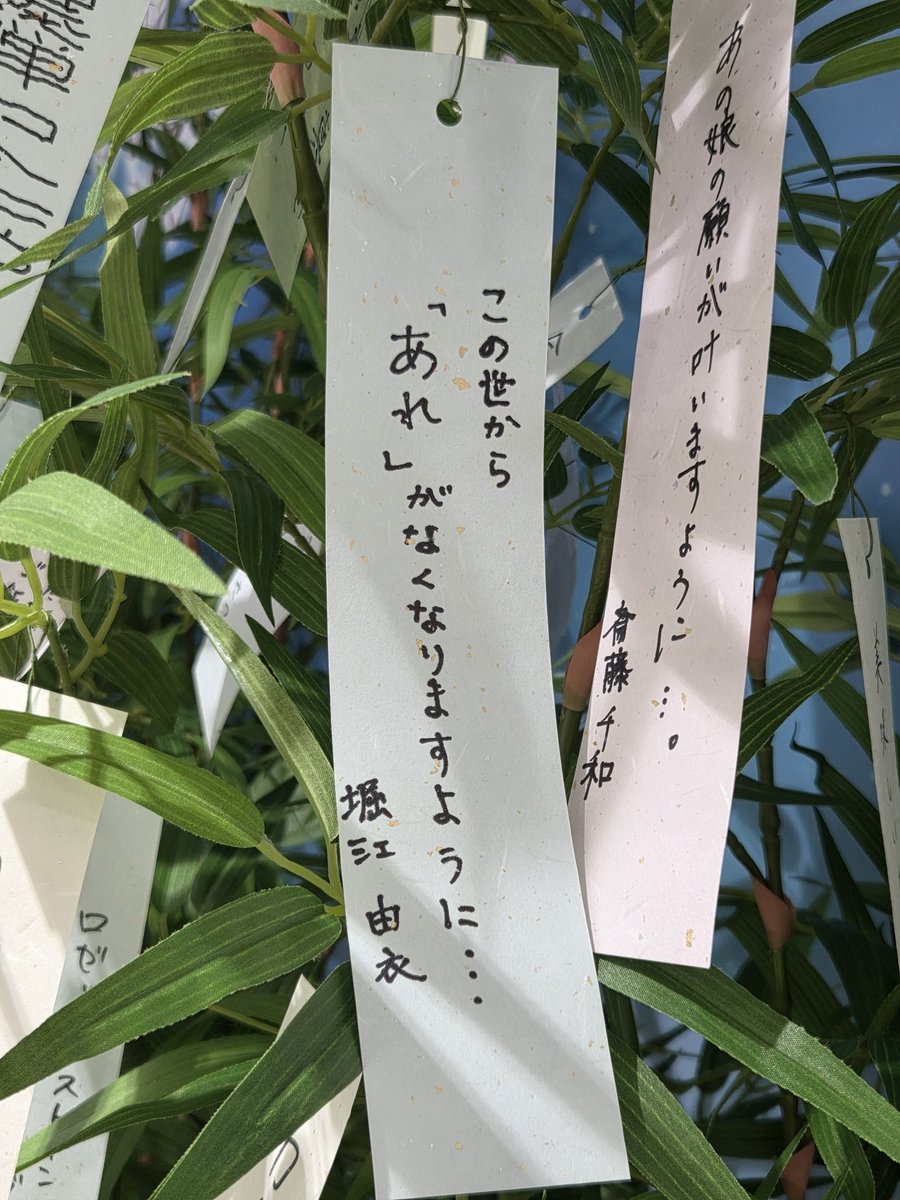 あの娘の願いが叶いますように…。
斎藤千和
この世から
「あれ」がなくなりますように…
堀江由衣